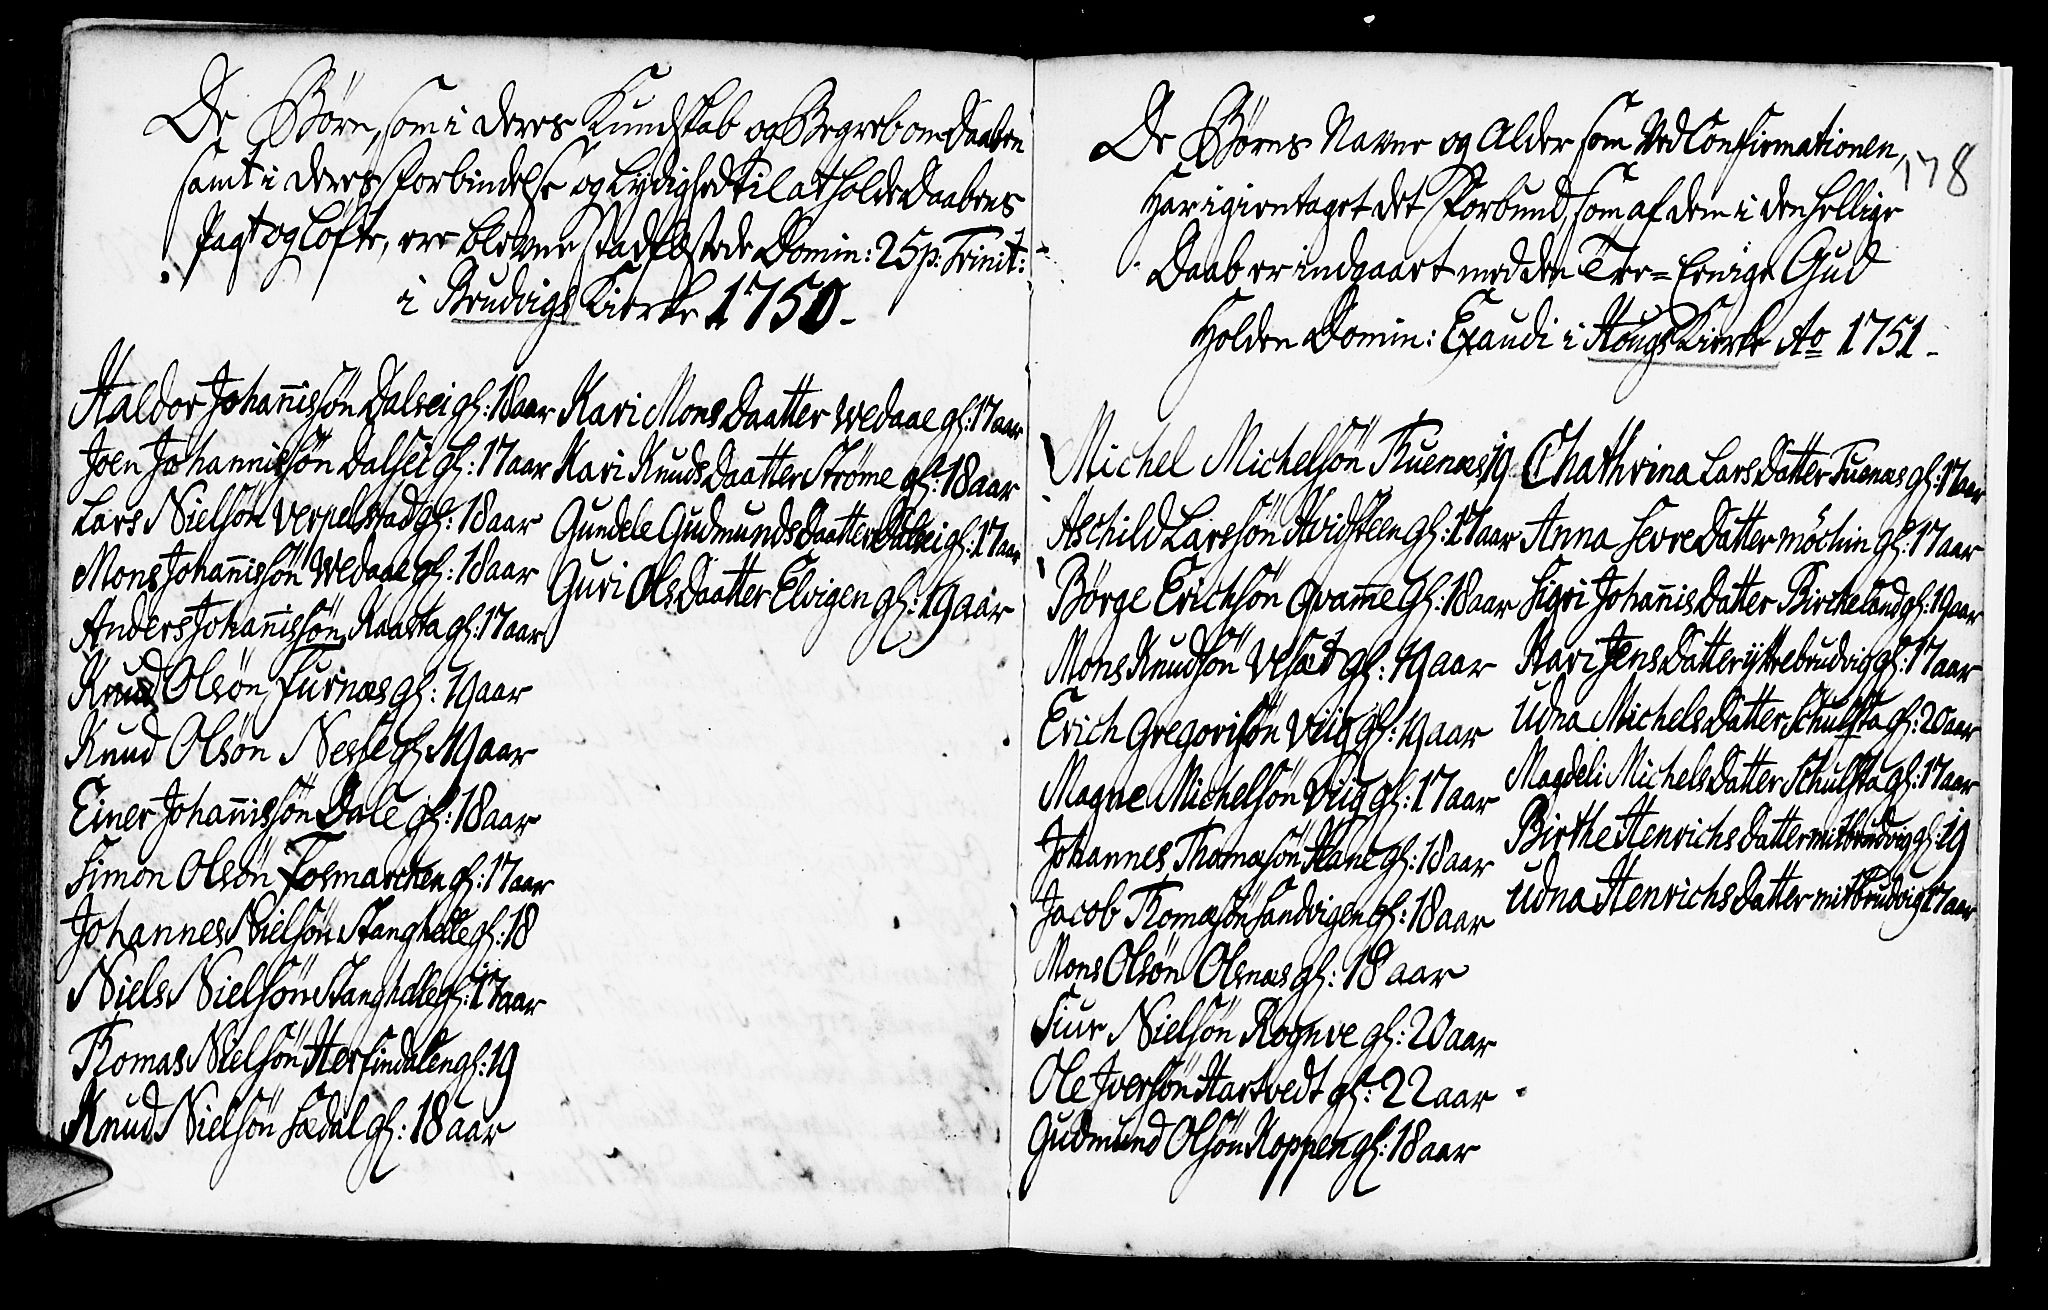 De Börn, som i deres Kundskab og Begreb om Daaben
samt i deres Forbindelse og Lydighed til at holde Daabens
Pagt og Løfte, ere blevne Stadfæstede Domin: 25 p: Trinit:
i Brudvigs Kierke 1750
Haldor Johannissön Dalsei gl: 18 aar
Joen Johannissön Dalsei gl: 17 aar
Lars Nielsön Verpelstad gl: 18 aar
Mons Johannissön Wedaae gl: 18 aar
Anders Johannissön Raasta gl: 17 aar
Knud Olsön Furnæs gl: 19 aar
Knud Olsön Nesse gl: 19 aar
Einer Johannissön Dale gl: 18 aar
Simon Olsön Fosmarcken gl: 17 aar
Johannes Nielsön Stanghelle gl: 18
Niels Nielsön Stanghelle gl: 17 aar
Thomas Nielsön Herfindalen gl: 19
Knud Nielsön Sædal gl: 18 aar
Kari Mons Daatter Wedaae gl: 17 aar
Kari Knuds Daatter Strøme gl: 18 aar
Gundele Gudmunds Daatter Dalsei gl: 17 aar
Guri Ols Daatter Elvigen gl: 19 aar
178
De Börns Navne og Alder som ved Confirmationen,
Har igientaget det Forbund, som af dem i den hellige
Daab er indgaaet med den Tre-Eenige Gud
Holden Domin: Exaudi i Hougs Kierke Ao 1751
Michel Michelsön Tuenæs 19
Aschild Larssön Hvidsteen gl: 17 aar
Börge Erichsön Qvamme gl: 18 aar
Mons Knudsön Vesæt gl: 19 aar
Erich Gregorisön Viig gl: 19 aar
Magne Michelsön Viig gl: 17 aar
Johannes Thomæsön Hane gl: 18 aar
Jacob Thomæsön Sandvigen gl: 18 aar
Mons Olsön Olsnæs gl: 18 aar
Siur Nielsön Rognve gl: 20 aar
Ole Iversön Hartvedt gl: 22 aar
Gudmund Olsön Koppen gl: 18 aar
Chathrina Lars Datter Tuenæs gl: 17 aar
Anna Sevre Datter Möchim gl: 17 aar
Sigri Johannis Datter Bircheland gl: 19 aar
Kari Jens Datter yttrebrudvig gl: 17 aar
Udna Michels Datter Schulsta gl: 20 aar
Magdeli Michels Datter Schulsta gl: 17 aar
Birthe Henrichs Datter mitbrudvig gl: 19
Udna Henrichs Datter mitbrudvig 17 aar